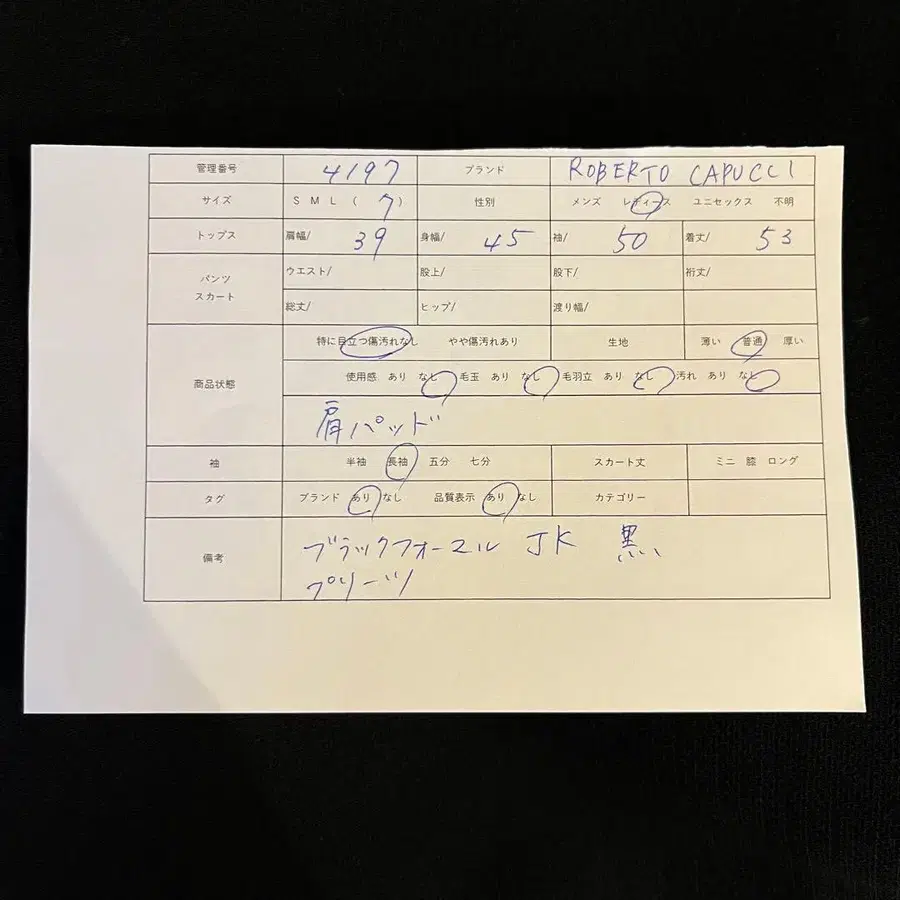 管理番号 4197 ブランド ROBERTO CAPUCCI
サイズ S M L ( 7 ) 性別 メンズ レディース ユニセックス 不明
トップス 肩幅/ 39 身幅/ 45 袖/ 50 着丈/ 53
パンツ スカート ウエスト/ 股上/ 股下/ 裄丈/
総丈/ ヒップ/ 渡り幅/
商品状態 特に目立つ傷汚れなし やや傷汚れあり 生地 薄い 普通 厚い
使用感 あり なし 毛玉 あり なし 毛羽立 あり なし 汚れ あり なし
肩パッド
袖 半袖 長袖 五分 七分 スカート丈 ミニ 膝 ロング
タグ ブランド あり なし 品質表示 あり なし カテゴリー
備考 ブラックフォーマル JK 黒
プリーツ